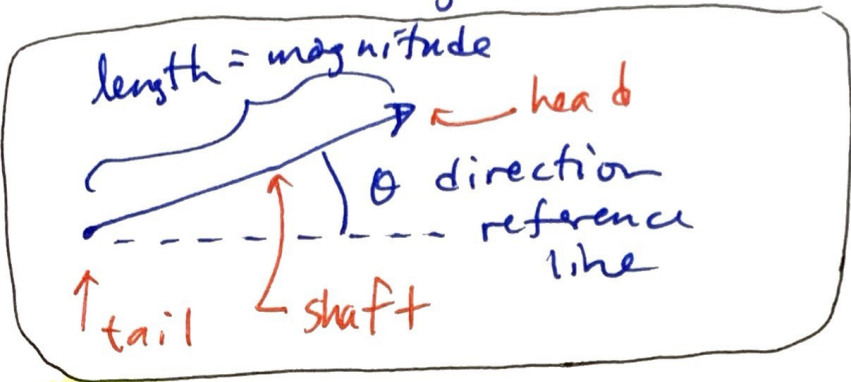 length = magnitude
head
θ direction
reference
line
shaft
tail